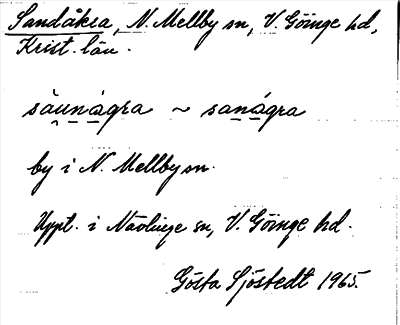 Sandåkra, N. Mellby sn, V. Göinge hd,
Krist. län.
sàunágra ~ sanágra
by i N. Mellby sn.
Uppt. i Nävlinge sn, V. Göinge hd.
Gösta Sjöstedt 1965.